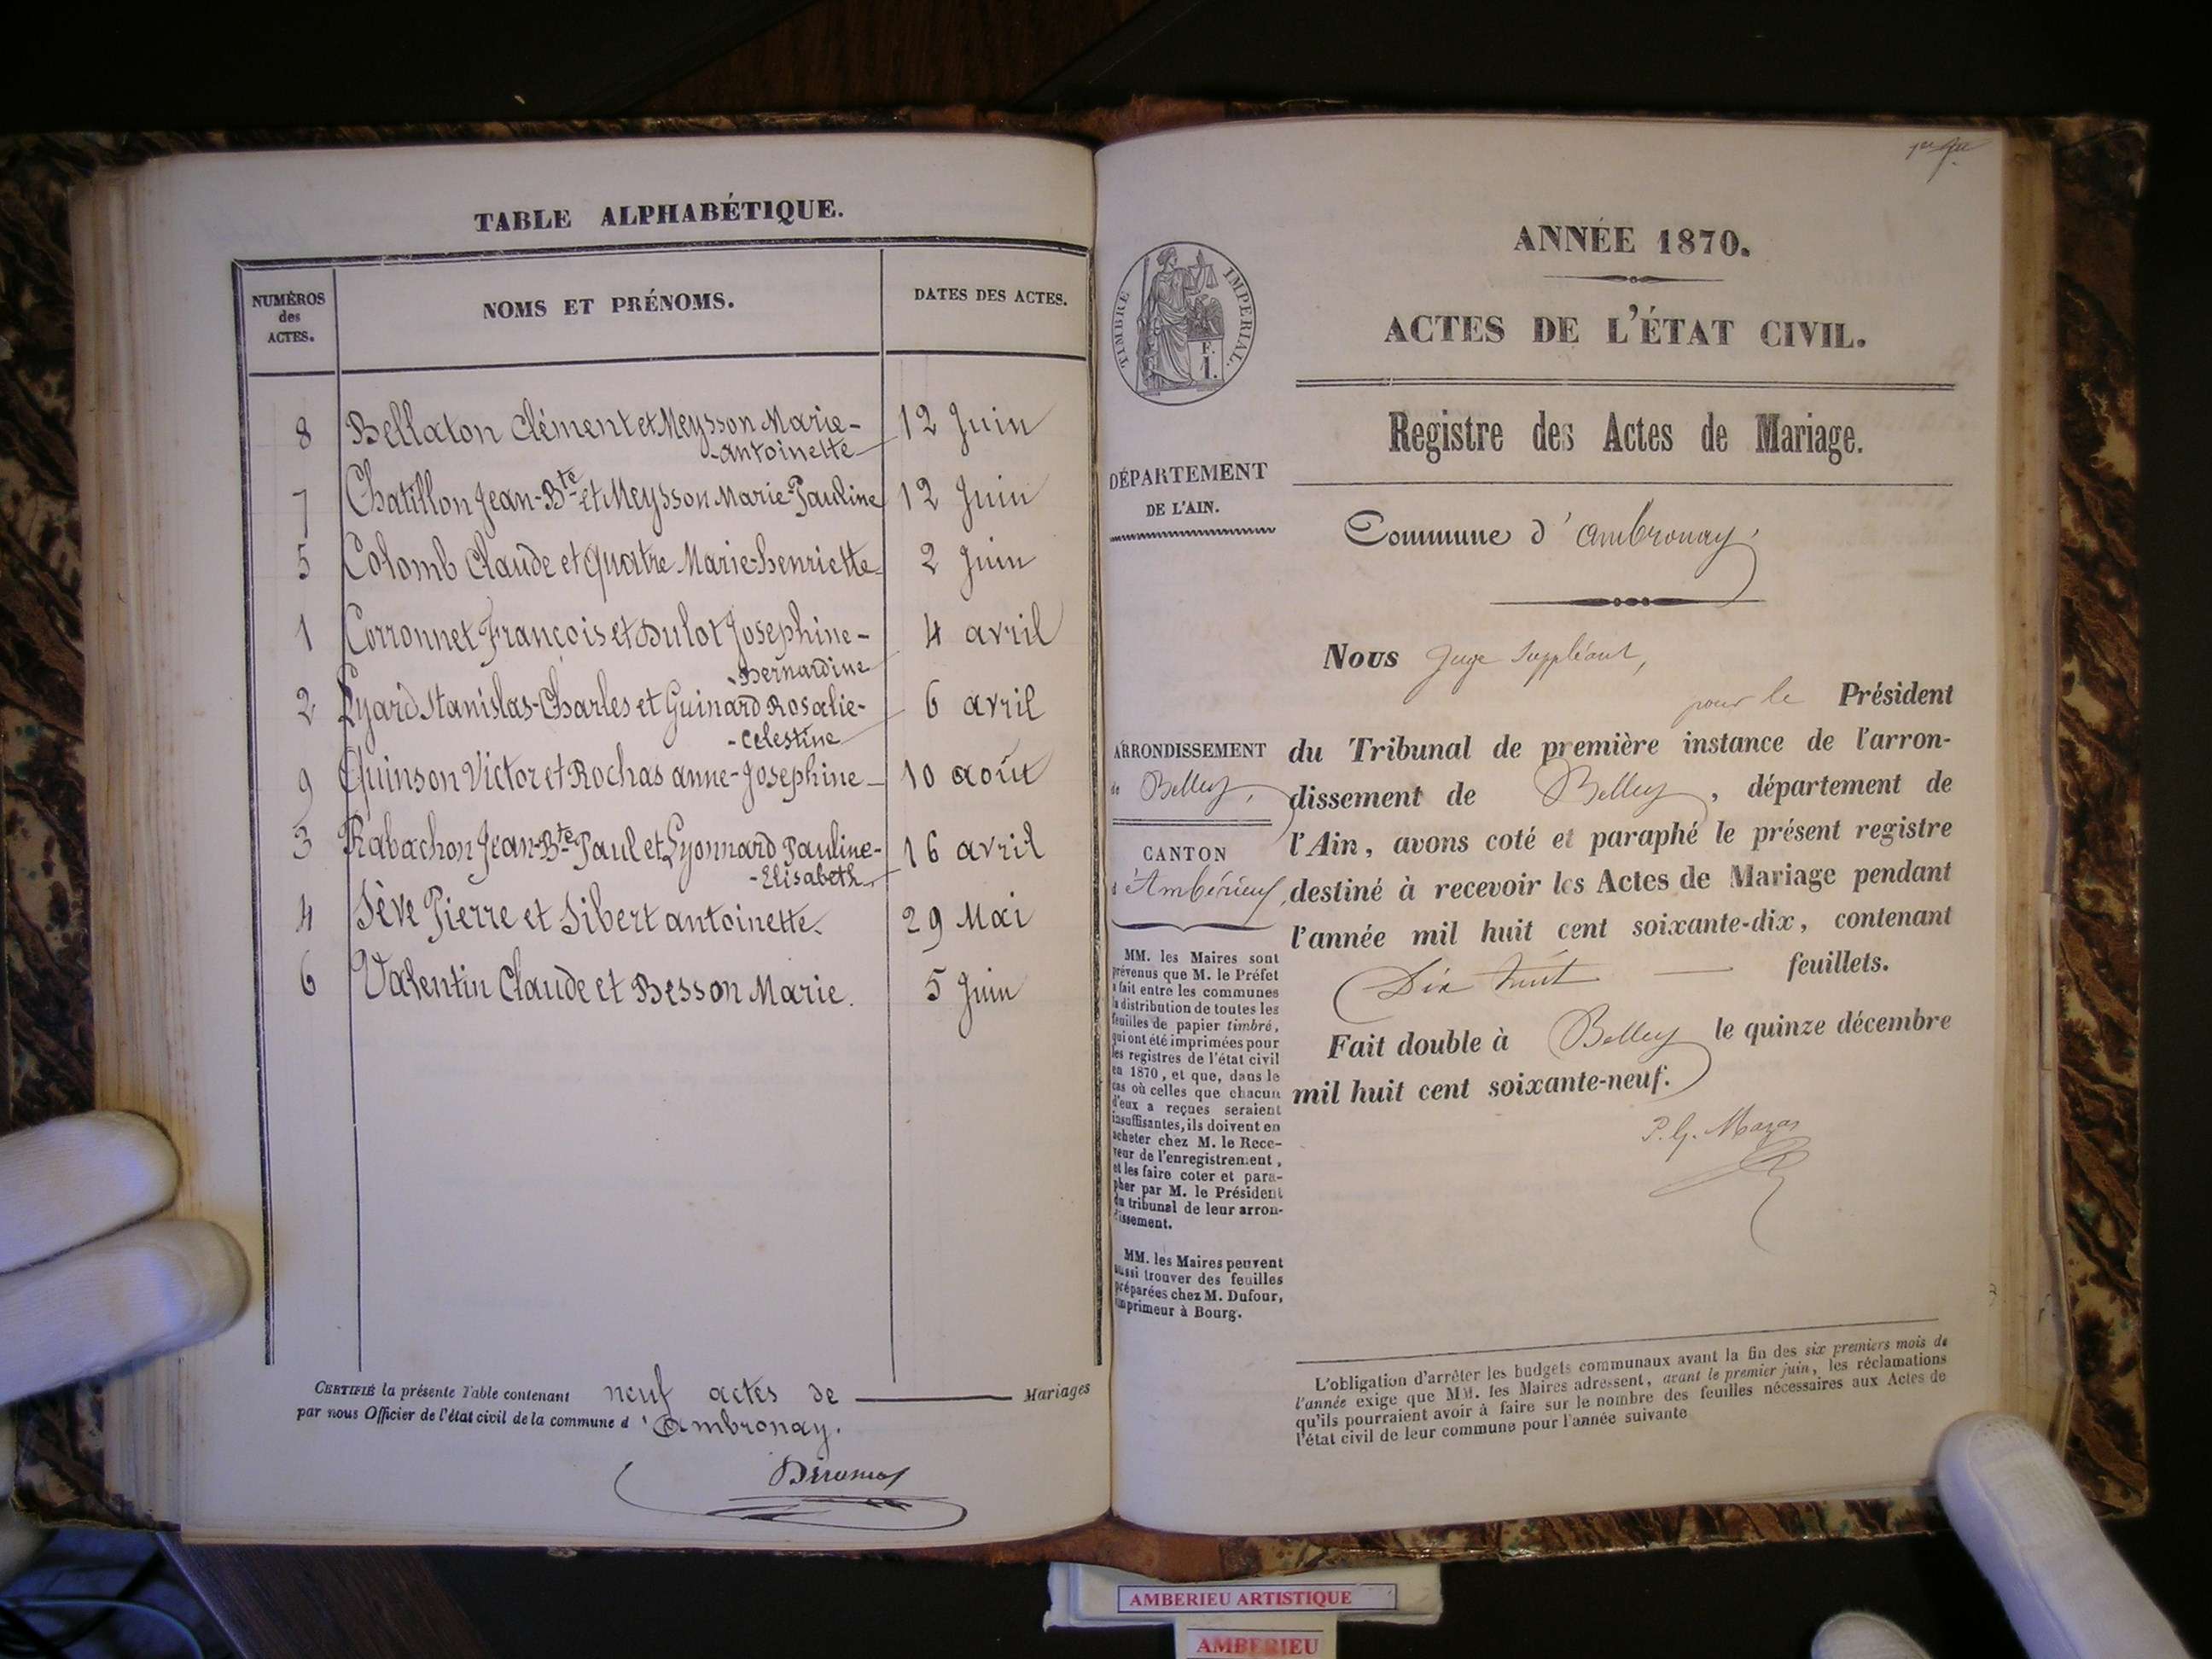 TABLE ALPHABÉTIQUE.
NUMÉROS
des
ACTES.
NOMS ET PRÉNOMS.
DATES DES ACTES.
8 Bellaton Clément et Meysson Marie- 12 Juin
-antoinette
7 Chatillon Jean-Bte et Meysson Marie-Pauline 12 Juin
5 Colomb Claude et Quatre Marie-henriette 2 Juin
1 Corronnet François et Dulot Josephine- 4 avril
-Bernardine
2 Lyard Stanislas-Charles et Guinard Rosalie- 6 avril
-celestine
9 Quinson Victor et Rochas anne-Josephine 10 août
3 Rabachon Jean-Bte-Paul et Lyonnard Pauline- 16 avril
-Elisabeth
4 Sève Pierre et Sibert antoinette. 29 Mai
6 Valentin Claude et Besson Marie. 5 Juin
CERTIFIÉ la présente Table contenant neuf actes de Mariages
par nous Officier de l'état civil de la commune d'ambronay.
ANNÉE 1870.
ACTES DE L'ÉTAT CIVIL.
Registre des Actes de Mariage.
TIMBRE IMPERIAL.
F.
1.
DÉPARTEMENT
DE L'AIN.
Commune d'ambronay.
Nous Juge Suppléant,
pour le Président
du Tribunal de première instance de l'arron-
dissement de Belley, département de
l'Ain, avons coté et paraphé le présent registre
destiné à recevoir les Actes de Mariage pendant
l'année mil huit cent soixante-dix, contenant
Dix huit — feuillets.
Fait double à Belley le quinze décembre
mil huit cent soixante-neuf.
P. G. Mazas
ARRONDISSEMENT
de Belley,
CANTON
d'Ambérieux,
MM. les Maires sont
prévenus que M. le Préfet
a fait entre les communes
la distribution de toutes les
feuilles de papier timbré,
qui ont été imprimées pour
les registres de l'état civil
en 1870, et que, dans le
cas où celles que chacun
d'eux a reçues seraient
insuffisantes, ils doivent en
acheter chez M. le Rece-
veur de l'enregistrement,
et les faire coter et para-
pher par M. le Président
du tribunal de leur arron-
dissement.
MM. les Maires peuvent
aussi trouver des feuilles
préparées chez M. Dufour,
imprimeur à Bourg.
L'obligation d'arrêter les budgets communaux avant la fin des six premiers mois de
l'année exige que MM. les Maires adressent, avant le premier juin, les réclamations
qu'ils pourraient avoir à faire sur le nombre des feuilles nécessaires aux Actes de
l'état civil de leur commune pour l'année suivante
AMBERIEU ARTISTIQUE
AMBERIEU